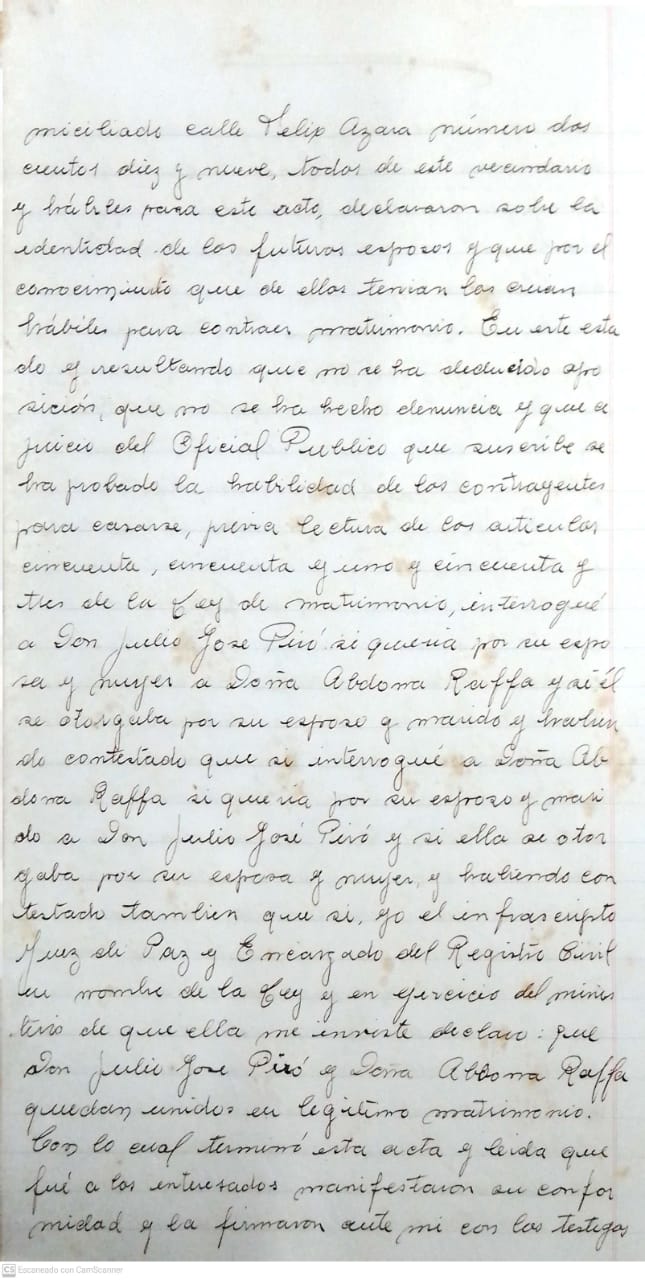 miciliado calle Felix Azara número dos
cientos diez y nueve, todos de este vecindario
y hábiles para este acto, declararon sobre la
identidad de los futuros esposos y que por el
conocimiento que de ellos tenian los creian
hábiles para contraer matrimonio. En este esta
do y resultando que no se ha deducido opo
sición, que no se ha hecho denuncia y que a
juicio del Oficial Publico que suscribe se
ha probado la habilidad de los contrayentes
para casarse, previa lectura de los articulos
cincuenta, cincuenta y uno y cincuenta y
tres de la Ley de matrimonio, interrogué
a Don Julio Jose Piró si queria por su espo
sa y mujer a Doña Abdona Raffa y si él
se otorgaba por su esposo y marido y habien
do contestado que si interrogué a Doña Ab
dona Raffa si queria por su esposo y mari
do a Don Julio José Piró y si ella se otor
gaba por su esposa y mujer, y habiendo con
testado tambien que si, yo el infrascripto
Juez de Paz y Encargado del Registro Civil
en nombre de la Ley y en ejercicio del minis
terio de que ella me inviste declaro: que
Don Julio Jose Piró y Doña Abdona Raffa
quedan unidos en legitimo matrimonio.
Con lo cual terminó esta acta y leida que
fué a los interesados manifestaron su confor
midad y la firmaron ante mi con los testigos
CS Escaneado con CamScanner